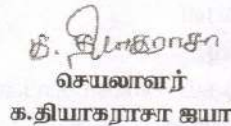 தி. தியாகராசா
செயலாளர்
க.தியாகராசா ஐயா